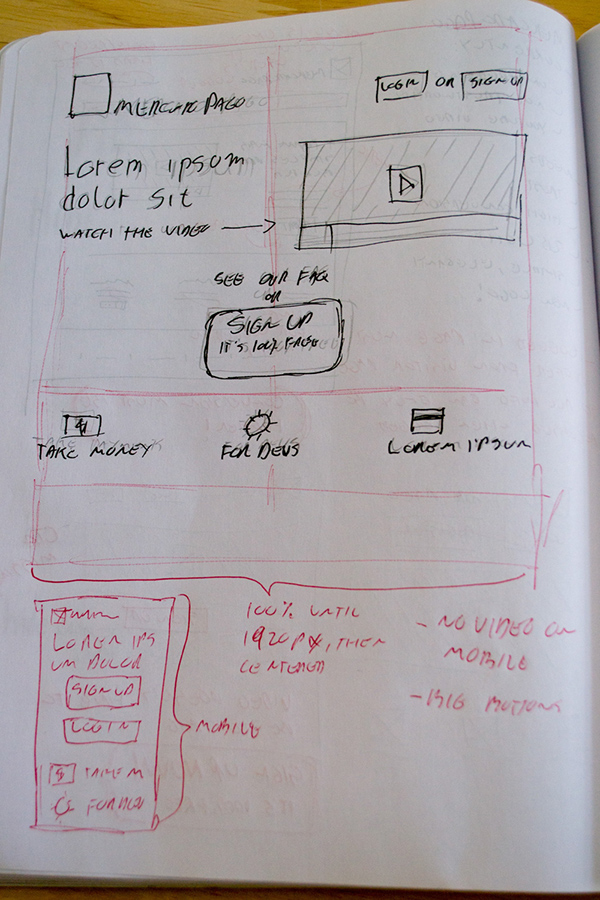 MERCADO PAGO
LOGIN OR SIGN UP
Lorem ipsum
dolor sit
WATCH THE VIDEO
SEE OUR FAQ
OR
SIGN UP
IT'S 100% FREE
$
TAKE MONEY
FOR DEVS
LOREM IPSUM
100% UNTIL
1920PX, THEN
CENTERED
- NO VIDEO ON
MOBILE
- BIG BUTTONS
LOREM IPS
UM DOLOR
SIGN UP
LOGIN
MOBILE
$ TAKE M
FOR DEV